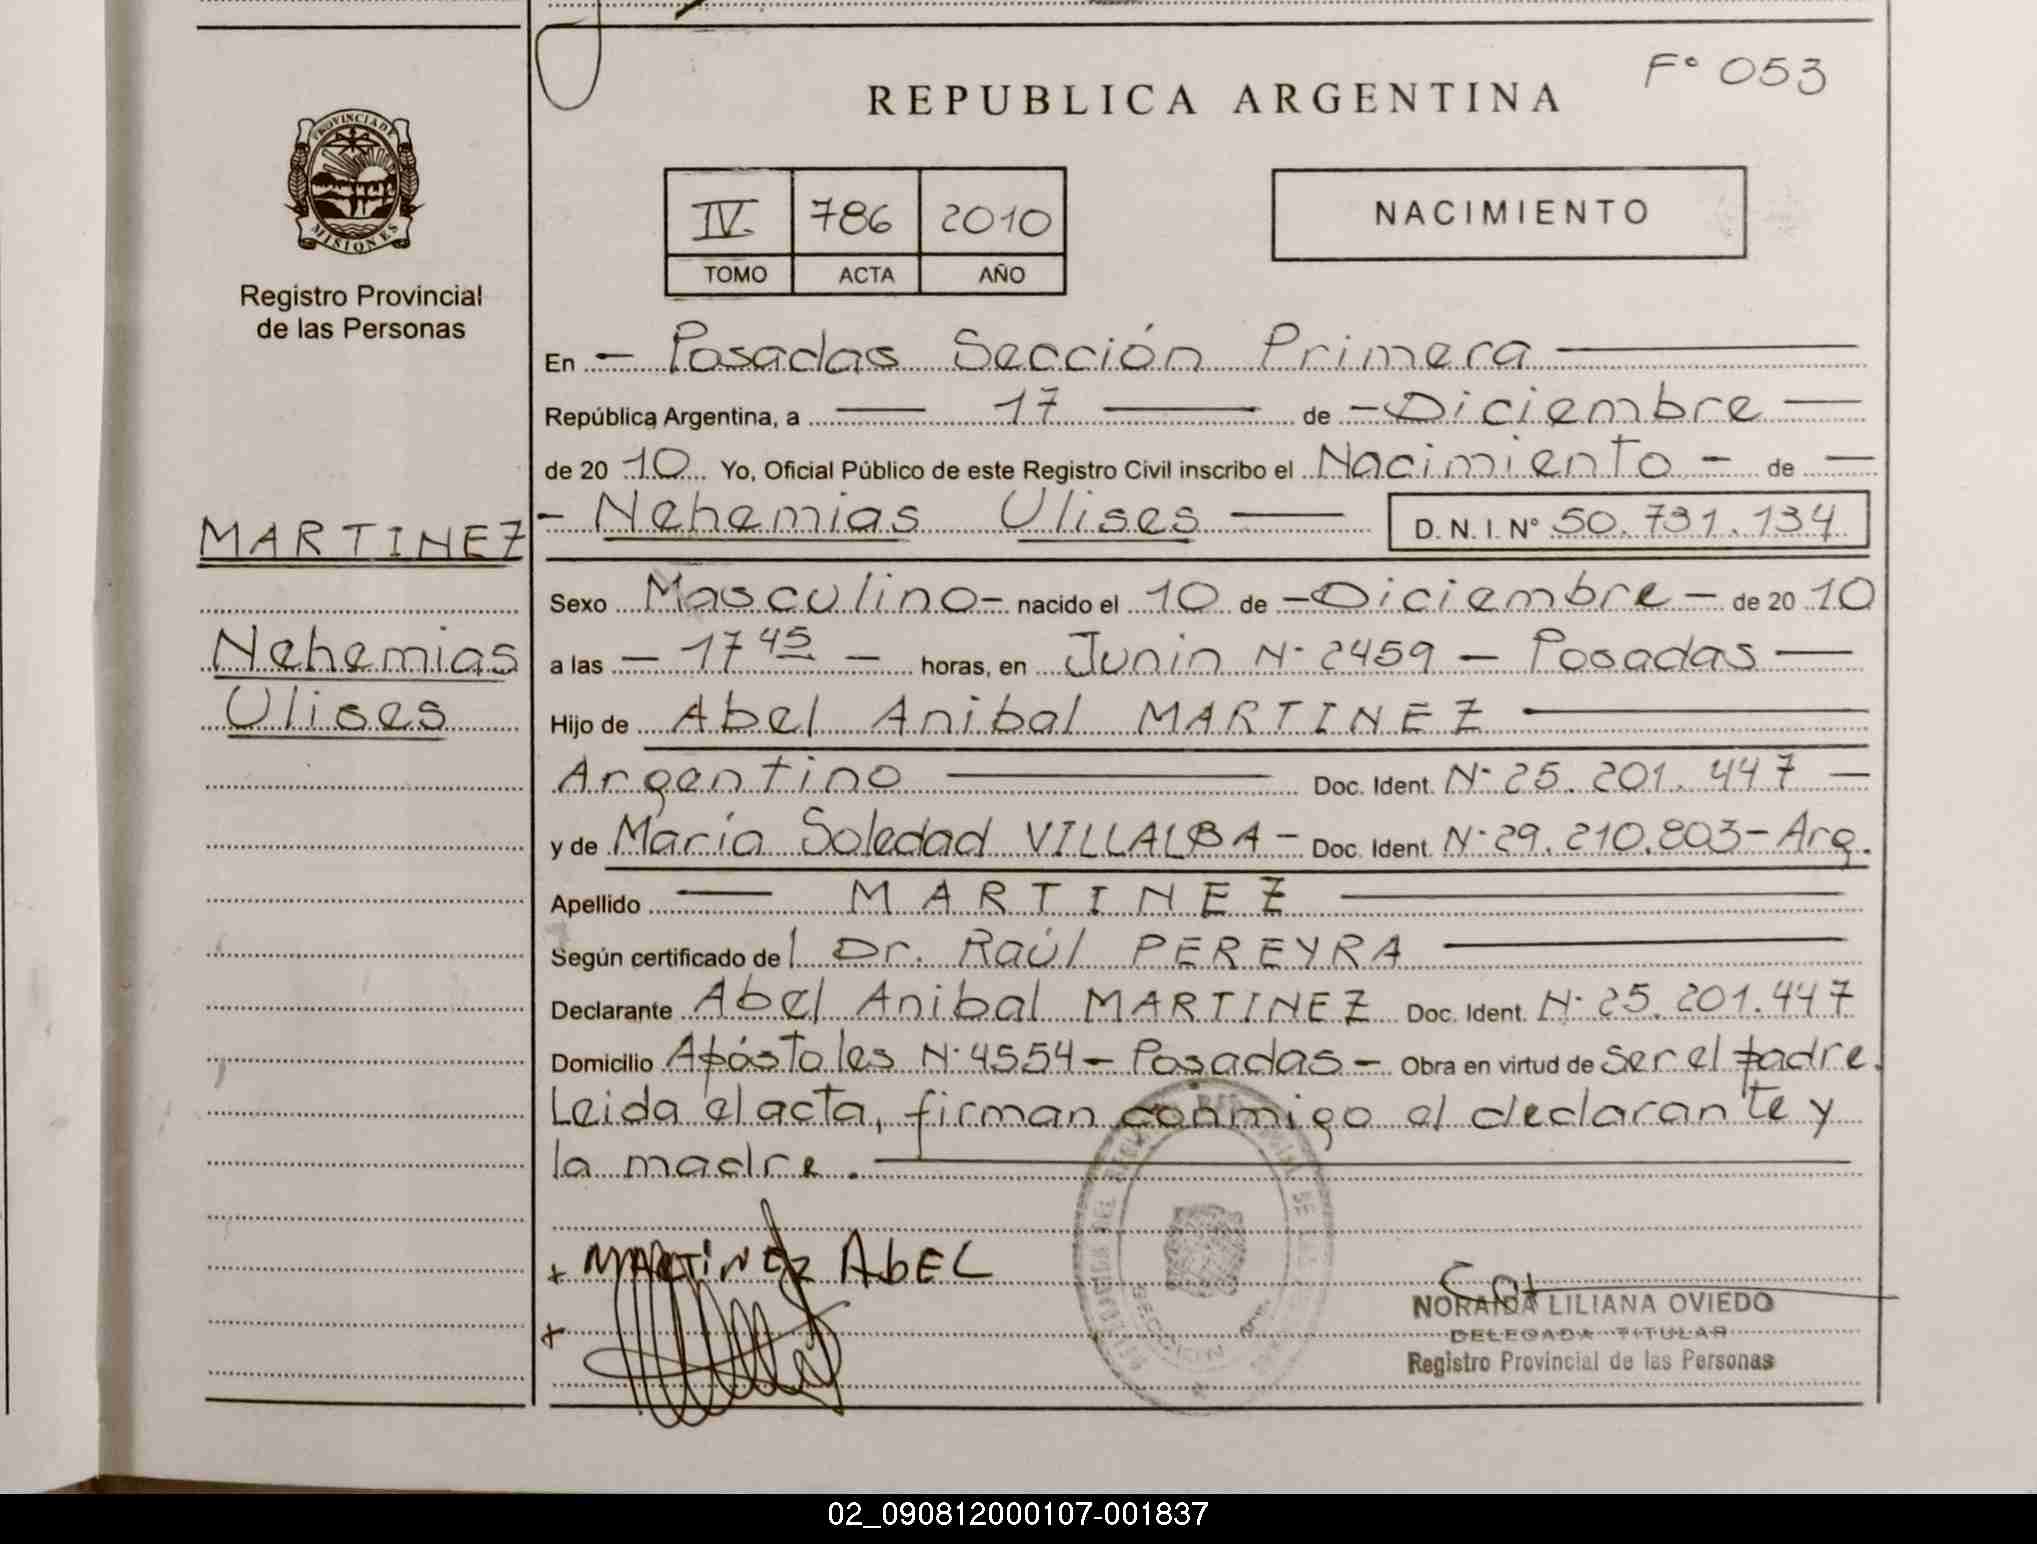 F° 053
REPUBLICA ARGENTINA
PROVINCIA DE
MISIONES
Registro Provincial
de las Personas
IV. 786 2010
TOMO ACTA AÑO
NACIMIENTO
En - Posadas Sección Primera
República Argentina, a 17 de - Diciembre
de 20 10 Yo, Oficial Público de este Registro Civil inscribo el Nacimiento - de
- Nehemias Ulises D. N. I. N° 50.731.134
MARTINEZ
Nehemias
Ulises
Sexo Masculino - nacido el 10 de - Diciembre - de 20 10
a las - 17 45 - horas, en Junin N· 2459 - Posadas
Hijo de Abel Anibal MARTINEZ
Argentino Doc. Ident. N· 25.201.447
y de María Soledad VILLALBA - Doc. Ident. N· 29.210.803 - Arg.
Apellido MARTINEZ
Según certificado de l Dr. Raúl PEREYRA
Declarante Abel Anibal MARTINEZ Doc. Ident. N· 25.201.447
Domicilio Apóstoles N· 4554 - Posadas - Obra en virtud de ser el padre.
Leida el acta, firman conmigo el declarante y
la madre.
+ MARTINEZ AbEL
+
NORAIDA LILIANA OVIEDO
DELEGADA TITULAR
Registro Provincial de las Personas
02_090812000107-001837